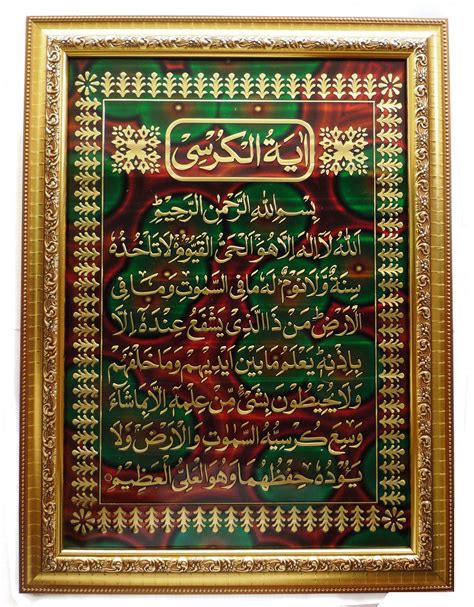 اية الكرسى
بسم الله الرحمن الرحيم
الله لا اله الا هو الحى القيوم لا تاخذه
سنة ولا نوم له ما فى السموت وما فى
الارض من ذا الذى يشفع عنده الا
باذنه يعلم ما بين ايديهم وما خلفهم
ولا يحيطون بشىء من علمه الا بماشاء
وسع كرسيه السموت والارض ولا
يئوده حفظهما وهو العلى العظيم